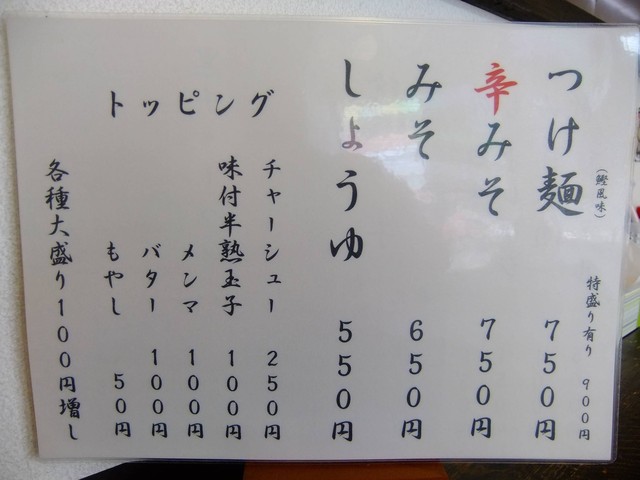 つけ麺 750円
(鰹風味)
特盛り有り 900円
辛みそ 750円
みそ 650円
しょうゆ 550円
トッピング
チャーシュー 250円
味付半熟玉子 100円
メンマ 100円
バター 100円
もやし 50円
各種大盛り100円増し